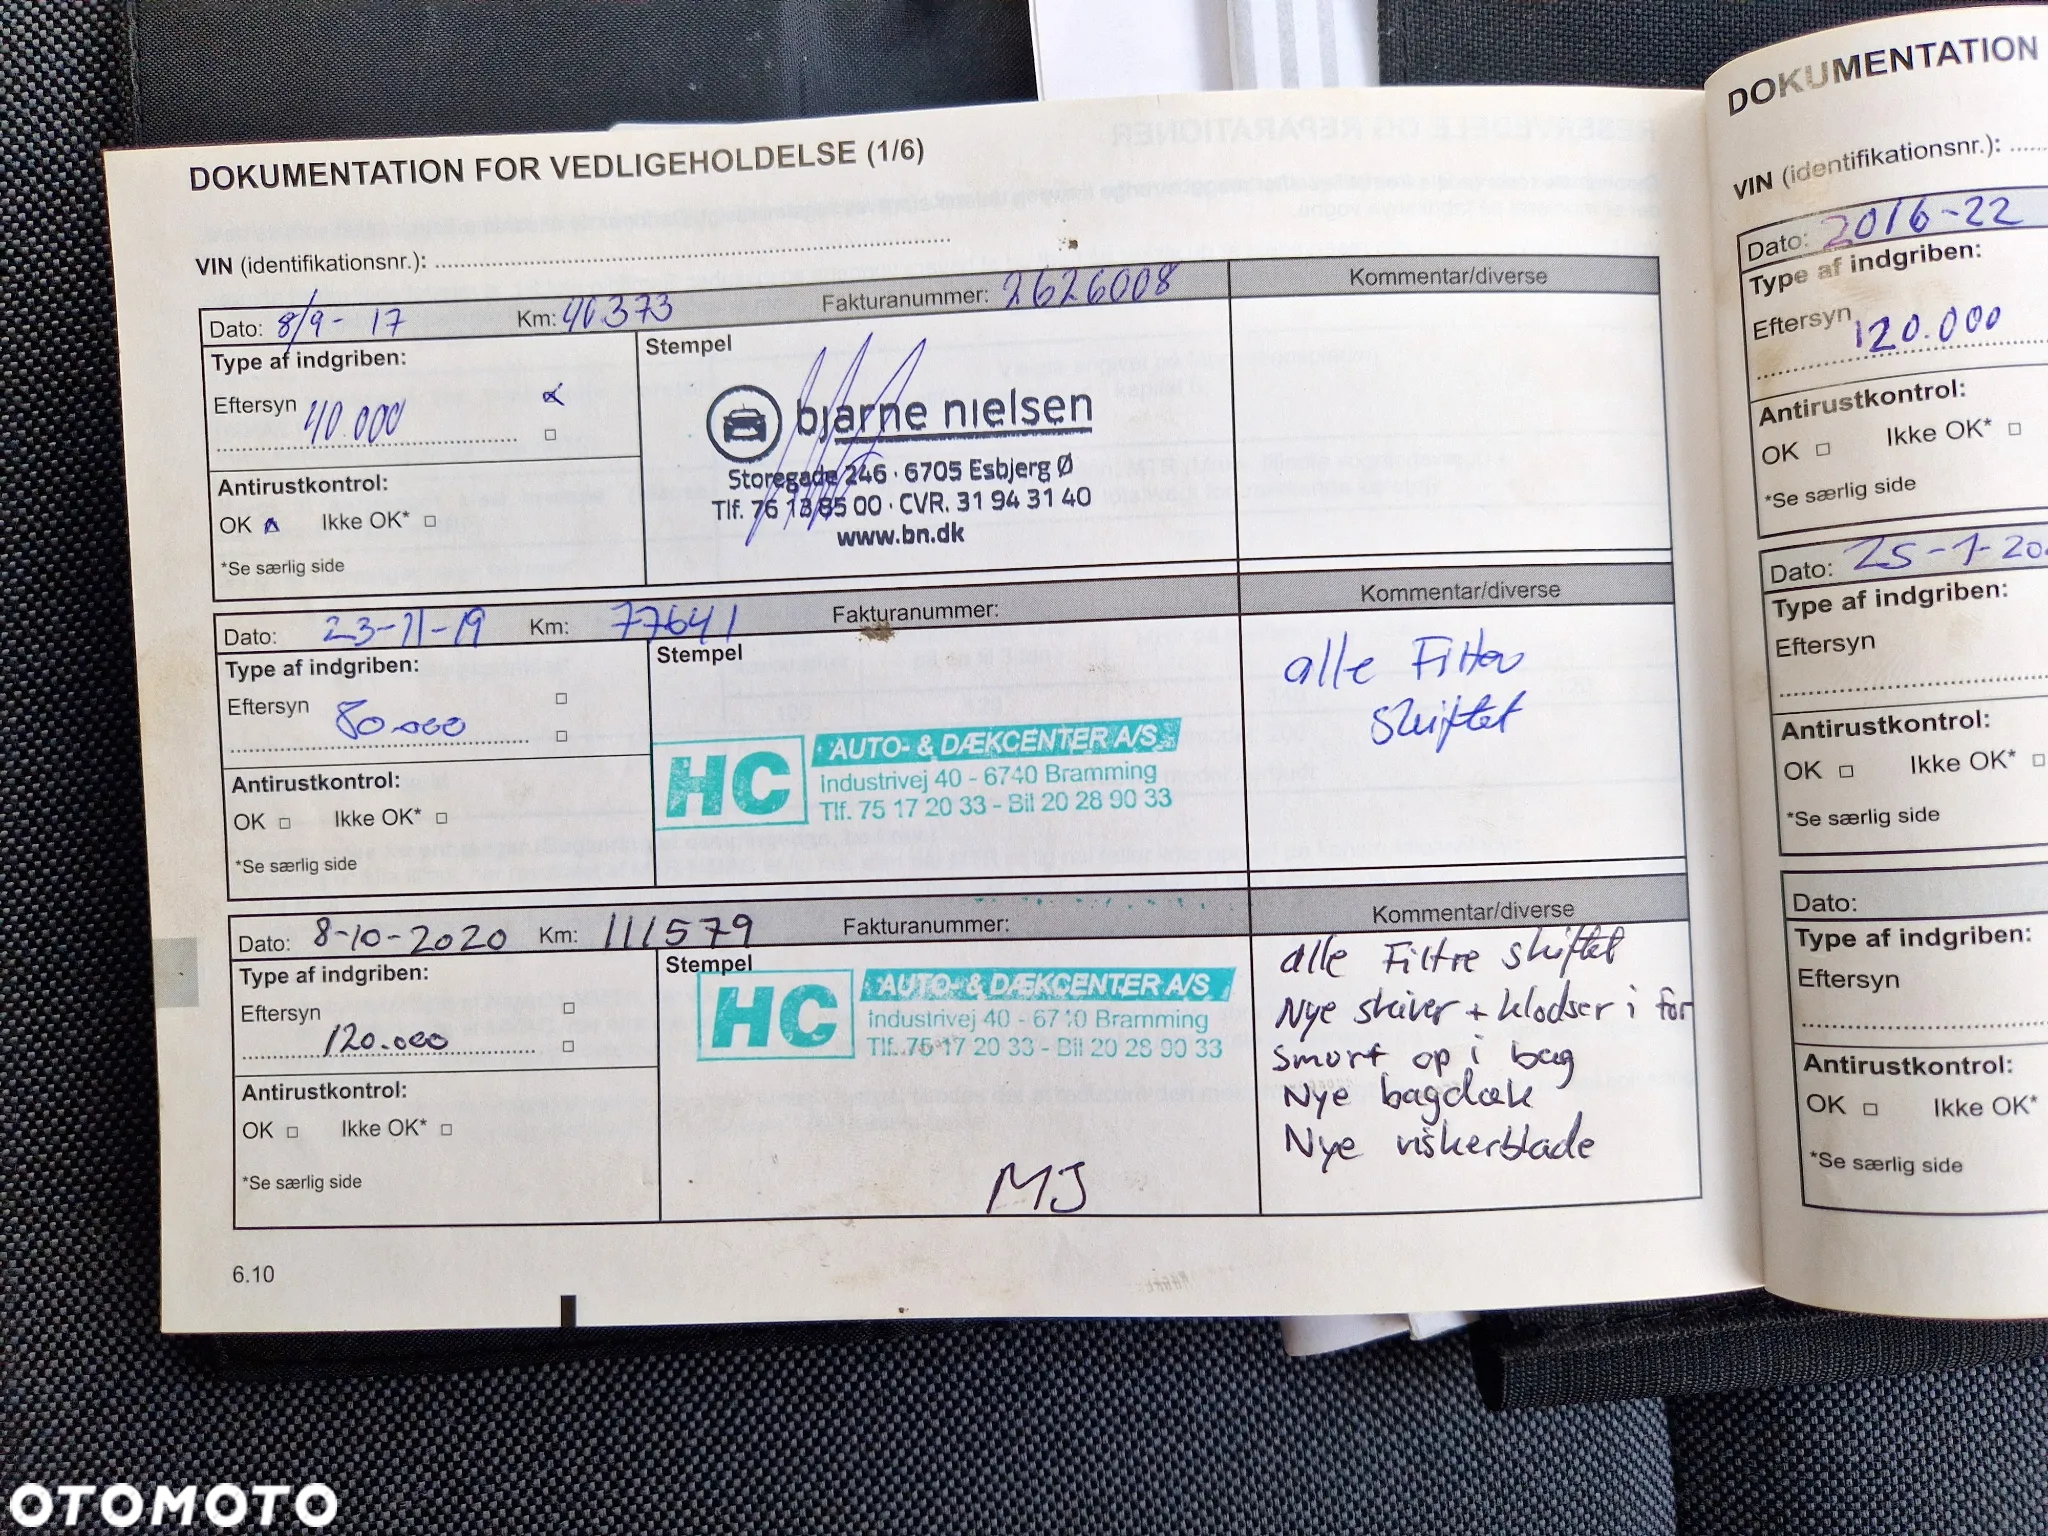 DOKUMENTATION FOR VEDLIGEHOLDELSE (1/6)
VIN (identifikationsnr.):
Dato: 8/9-17 Km: 40373 Fakturanummer: 2626008 Kommentar/diverse
Type af indgriben:
Eftersyn 40.000
Stempel
bjarne nielsen
Storegade 246 · 6705 Esbjerg Ø
Tlf. 76 13 85 00 · CVR. 31 94 31 40
www.bn.dk
Antirustkontrol:
OK Ikke OK*
*Se særlig side
Dato: 23-11-19 Km: 77641 Fakturanummer: Kommentar/diverse
Type af indgriben:
Eftersyn 80.000
Stempel
HC AUTO- & DÆKCENTER A/S
Industrivej 40 - 6740 Bramming
Tlf. 75 17 20 33 - Bil 20 28 90 33
alle Filter
skiftet
Antirustkontrol:
OK Ikke OK*
*Se særlig side
Dato: 8-10-2020 Km: 111579 Fakturanummer: Kommentar/diverse
Type af indgriben:
Eftersyn 120.000
Stempel
HC AUTO- & DÆKCENTER A/S
Industrivej 40 - 6740 Bramming
Tlf. 75 17 20 33 - Bil 20 28 90 33
MJ
alle Filtre skiftet
Nye skiver + klodser i for
smurt op i bag
Nye bagdæk
Nye viskerblade
Antirustkontrol:
OK Ikke OK*
*Se særlig side
6.10
DOKUMENTATION
VIN (identifikationsnr.):
Dato: 2016-22
Type af indgriben:
Eftersyn 120.000
Antirustkontrol:
OK Ikke OK*
*Se særlig side
Dato: 25-1-20
Type af indgriben:
Eftersyn
Antirustkontrol:
OK Ikke OK*
*Se særlig side
Dato:
Type af indgriben:
Eftersyn
Antirustkontrol:
OK Ikke OK*
*Se særlig side
OTOMOTO